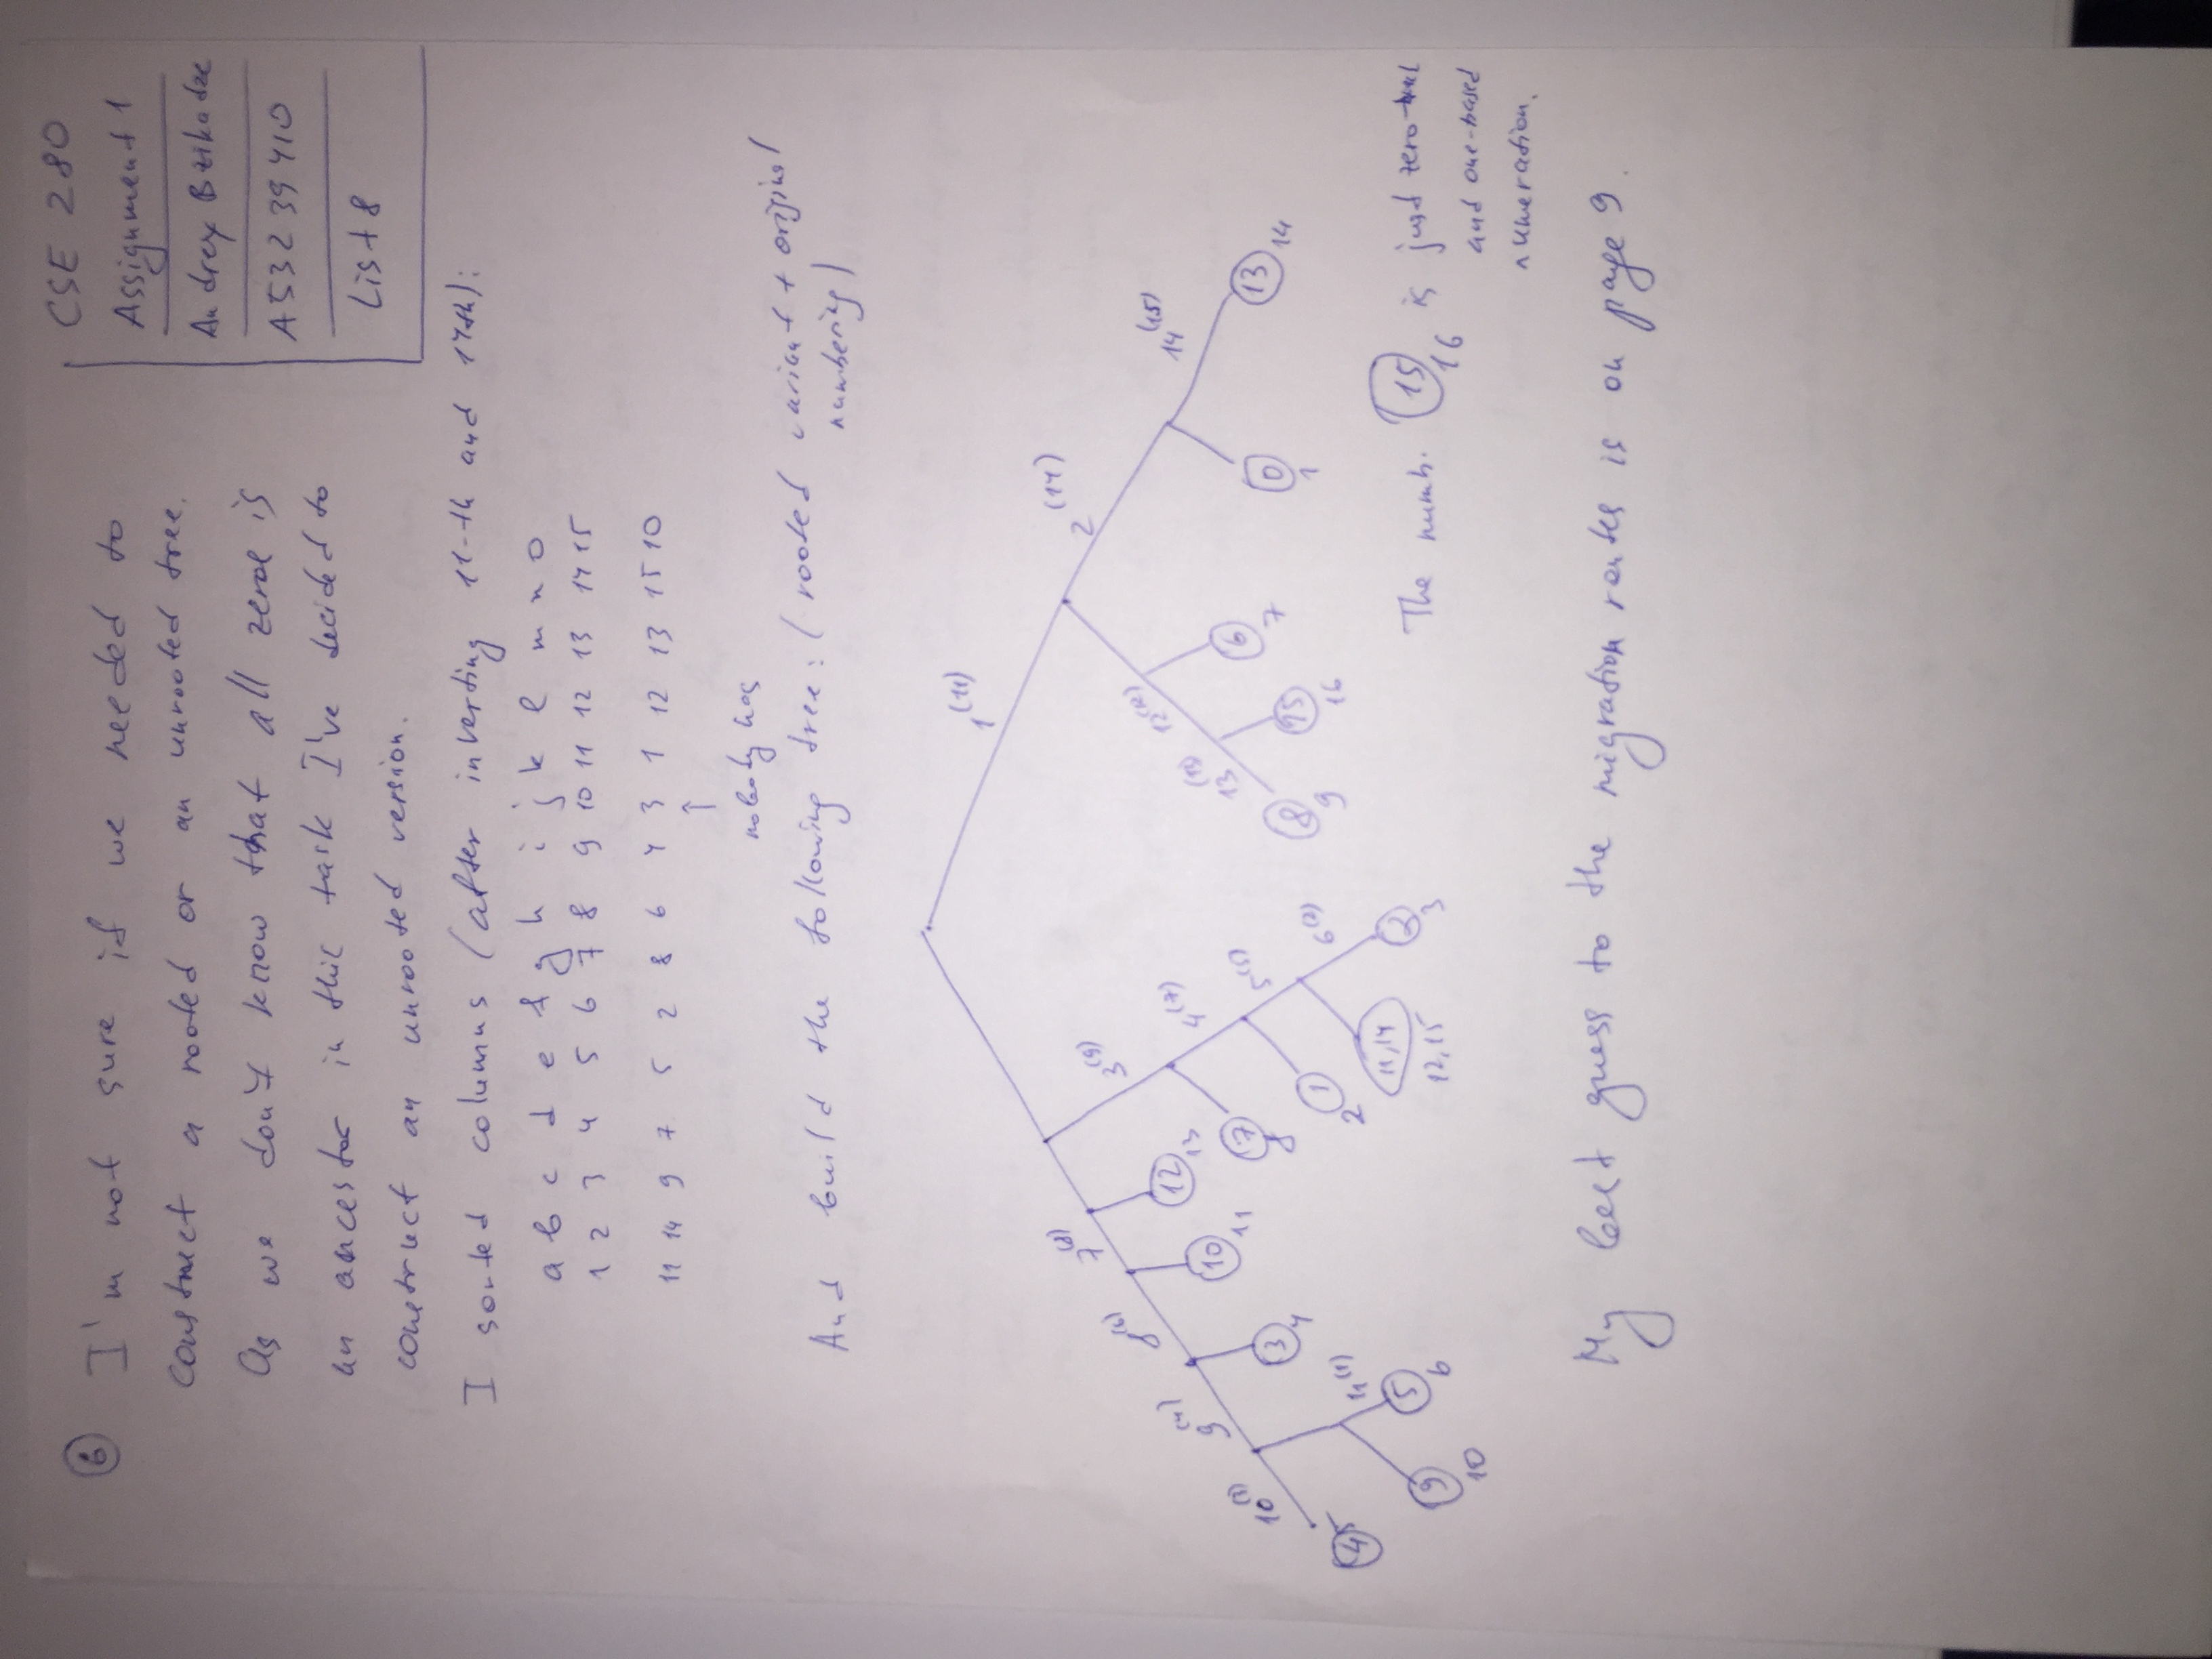 CSE 280
Assignment 1
Andrey Bzikadze
A53239410
List 8
6 I'm not sure if we needed to
construct a rooted or an unrooted tree.
As we don't know that all zeroe is
an ancestor in this task I've decided to
construct an unrooted version.
I sorted columns (after inverting 11-th and 14th):
a b c d e f g h i j k l m n o
1 2 3 4 5 6 7 8 9 10 11 12 13 14 15
11 14 9 7 5 2 8 6 4 3 1 12 13 15 10
↑
nobody has
And build the following tree: (rooted variant + original
numbering)
1(11)
2(14)
7(8)
3(9)
8(6)
12(12)
14(15)
9(4)
12 13
4(7)
13(13)
10(3)
10 11
7 8
5(5)
6 7
0 1
13 14
3 4
8 9
15 16
4 5
11(1)
1 2
6(2)
9 10
5 6
11,14
12,15
2 3
The numb. 15 16 is just zero
and one-based
numeration.
My best guess to the migration routes is on page 9.